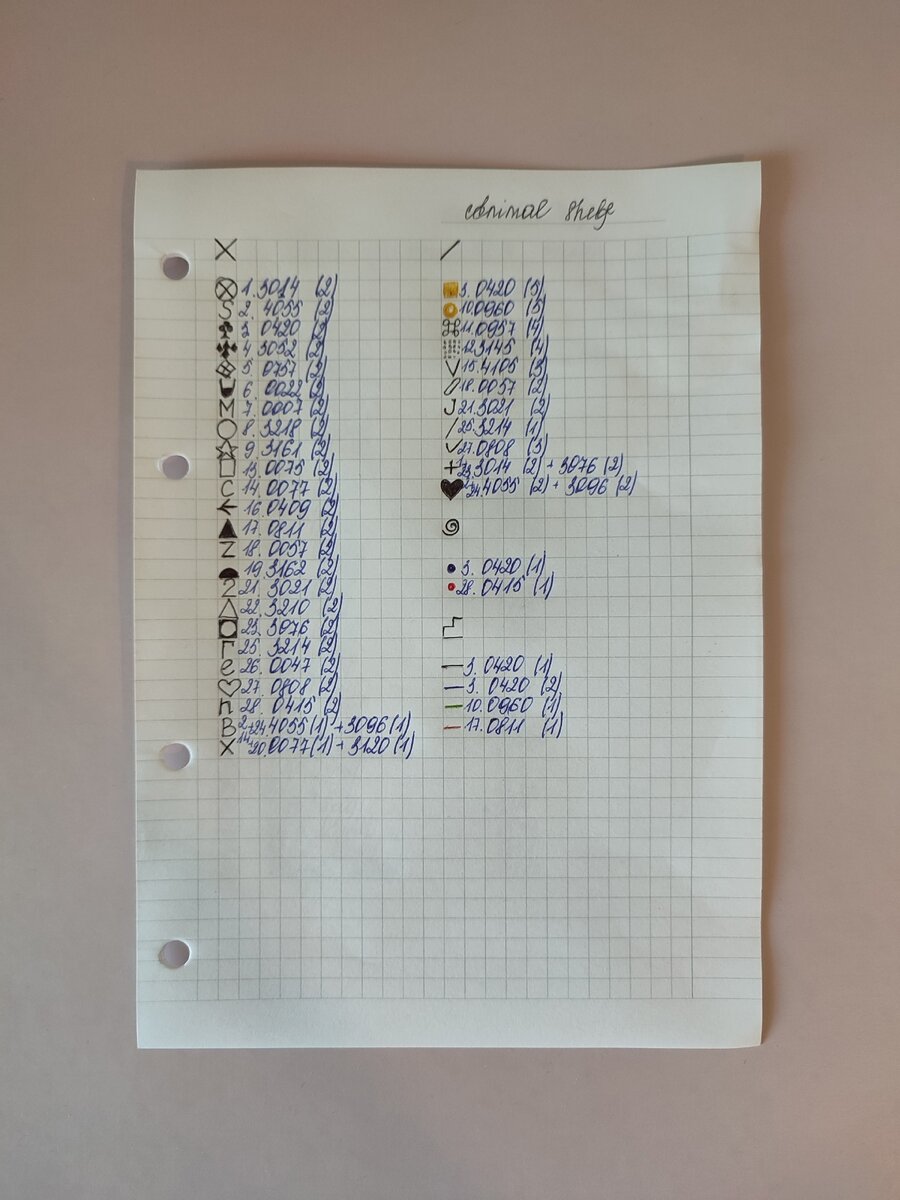 Animal Shelf
X
1. 3014 (2)
S 2. 4055 (2)
3. 0420 (2)
4. 3052 (2)
5. 0757 (2)
6. 0022 (2)
M 7. 0007 (2)
8. 3218 (2)
9. 3161 (2)
13. 0075 (2)
C 14. 0077 (2)
16. 0409 (2)
17. 0811 (2)
Z 18. 0057 (2)
19. 3162 (2)
2 21. 3021 (2)
22. 3210 (2)
23. 3076 (2)
Г 25. 3214 (2)
e 26. 0047 (2)
27. 0808 (2)
n 28. 0415 (2)
B 2+24. 4055 (1) + 3096 (1)
X 14+20. 0077 (1) + 3120 (1)
/
3. 0420 (5)
10. 0960 (5)
11. 0957 (4)
12. 3145 (4)
V 15. 4105 (3)
18. 0057 (2)
J 21. 3021 (2)
/ 25. 3214 (1)
27. 0808 (3)
+ 3014 (2) + 3076 (2)
4055 (2) + 3096 (2)
3. 0420 (1)
28. 0415 (1)
3. 0420 (1)
3. 0420 (2)
10. 0960 (1)
17. 0811 (1)